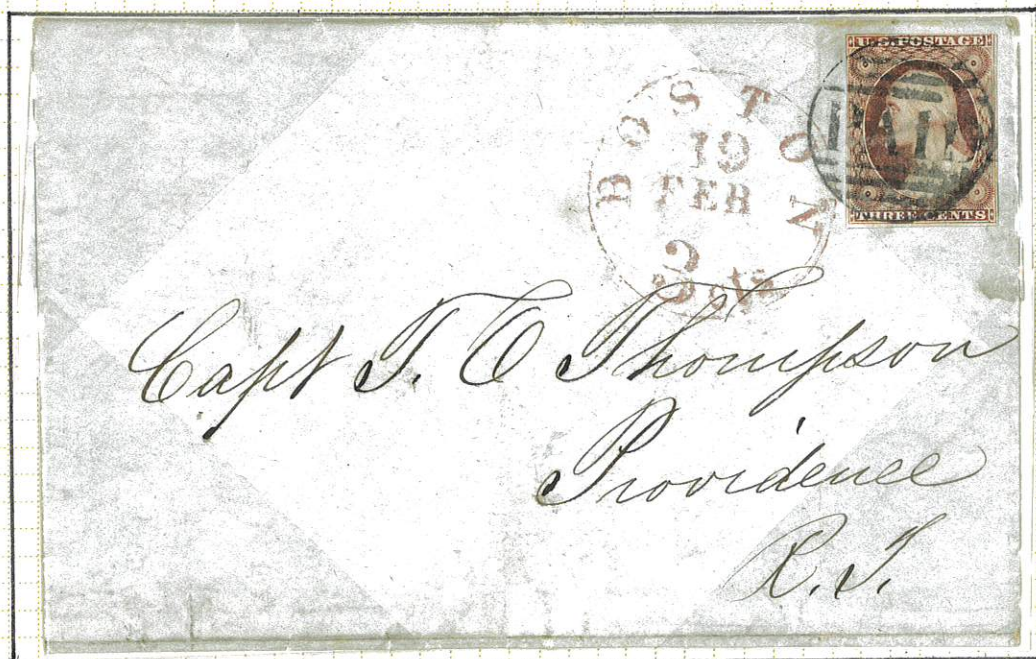 U.S. POSTAGE
THREE CENTS
PAID
BOSTON
19
FEB
3 cts
Capt T. C Thompson
Providence
R.I.